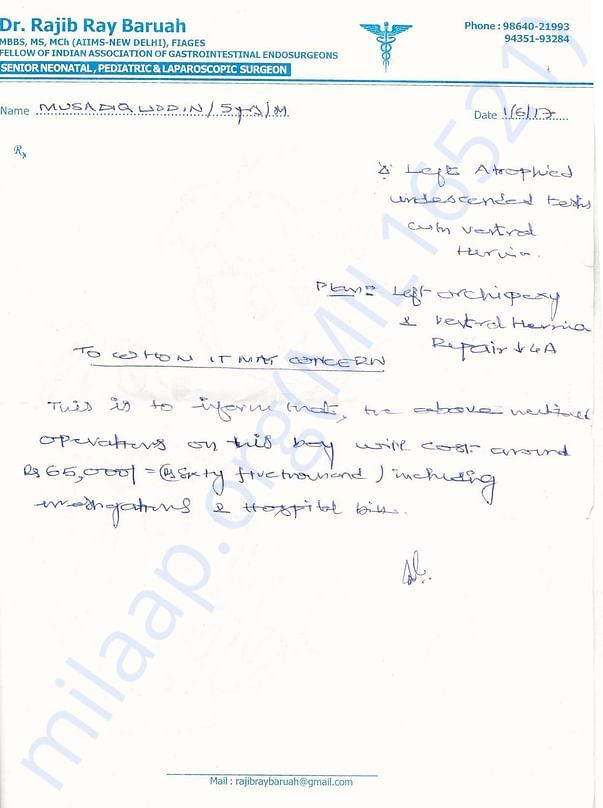 Dr. Rajib Ray Baruah
MBBS, MS, MCh (AIIMS-NEW DELHI), FIAGES
FELLOW OF INDIAN ASSOCIATION OF GASTROINTESTINAL ENDOSURGEONS
SENIOR NEONATAL, PEDIATRIC & LAPAROSCOPIC SURGEON
Phone : 98640-21993
94351-93284
Name MUSADIQ UDDIN / 5 yrs / M
Date 1/6/17
Rx
Δ Left Atrophied
undescended testis
with ventral
Hernia.
Plan = Left orchipexy
& ventral Hernia
Repair ↓ GA
TO WHOM IT MAY CONCERN
This is to inform that, the above mentioned
operations on this boy will cost around
Rs 65,000/= (Rs Sixty five thousand) including
investigations & Hospital bills.
Mail : rajibraybaruah@gmail.com
milaap.org(MIL 16521)